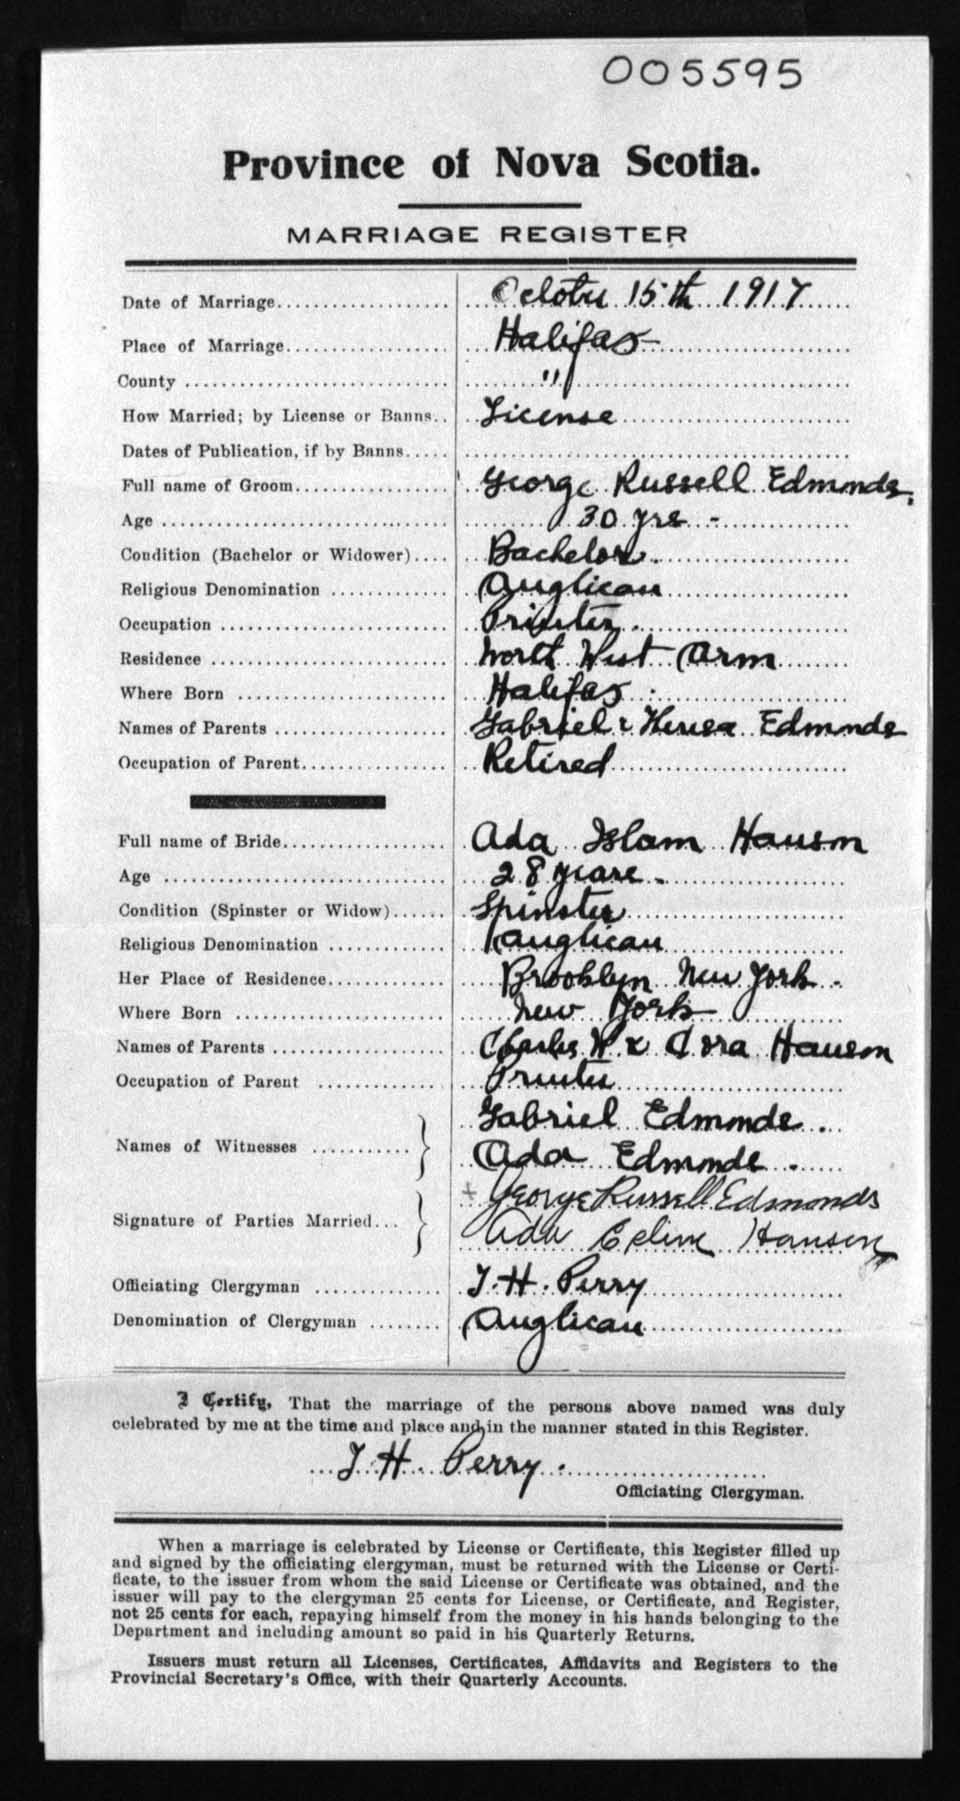 005595
Province of Nova Scotia.
MARRIAGE REGISTER
Date of Marriage October 15th 1917
Place of Marriage Halifax
County "
How Married; by License or Banns License
Dates of Publication, if by Banns
Full name of Groom George Russell Edmonds
Age 30 yrs -
Condition (Bachelor or Widower) Bachelor.
Religious Denomination Anglican
Occupation Printer.
Residence North West Arm
Where Born Halifax
Names of Parents Gabriel & Edmonds
Occupation of Parent Retired
Full name of Bride Ada Hanson
Age 28 years
Condition (Spinster or Widow) Spinster
Religious Denomination Anglican
Her Place of Residence Brooklyn New York
Where Born New York
Names of Parents Charles W & Cora Hanson
Occupation of Parent Printer
Gabriel Edmonds.
Names of Witnesses
Ada Edmonds.
George Russell Edmonds
Signature of Parties Married
Ada Hansen
Officiating Clergyman T. H. Perry
Denomination of Clergyman Anglican
I Certify, That the marriage of the persons above named was duly
celebrated by me at the time and place and in the manner stated in this Register.
T. H. Perry.
Officiating Clergyman.
When a marriage is celebrated by License or Certificate, this Register filled up
and signed by the officiating clergyman, must be returned with the License or Certi-
ficate, to the issuer from whom the said License or Certificate was obtained, and the
issuer will pay to the clergyman 25 cents for License, or Certificate, and Register,
not 25 cents for each, repaying himself from the money in his hands belonging to the
Department and including amount so paid in his Quarterly Returns.
Issuers must return all Licenses, Certificates, Affidavits and Registers to the
Provincial Secretary's Office, with their Quarterly Accounts.